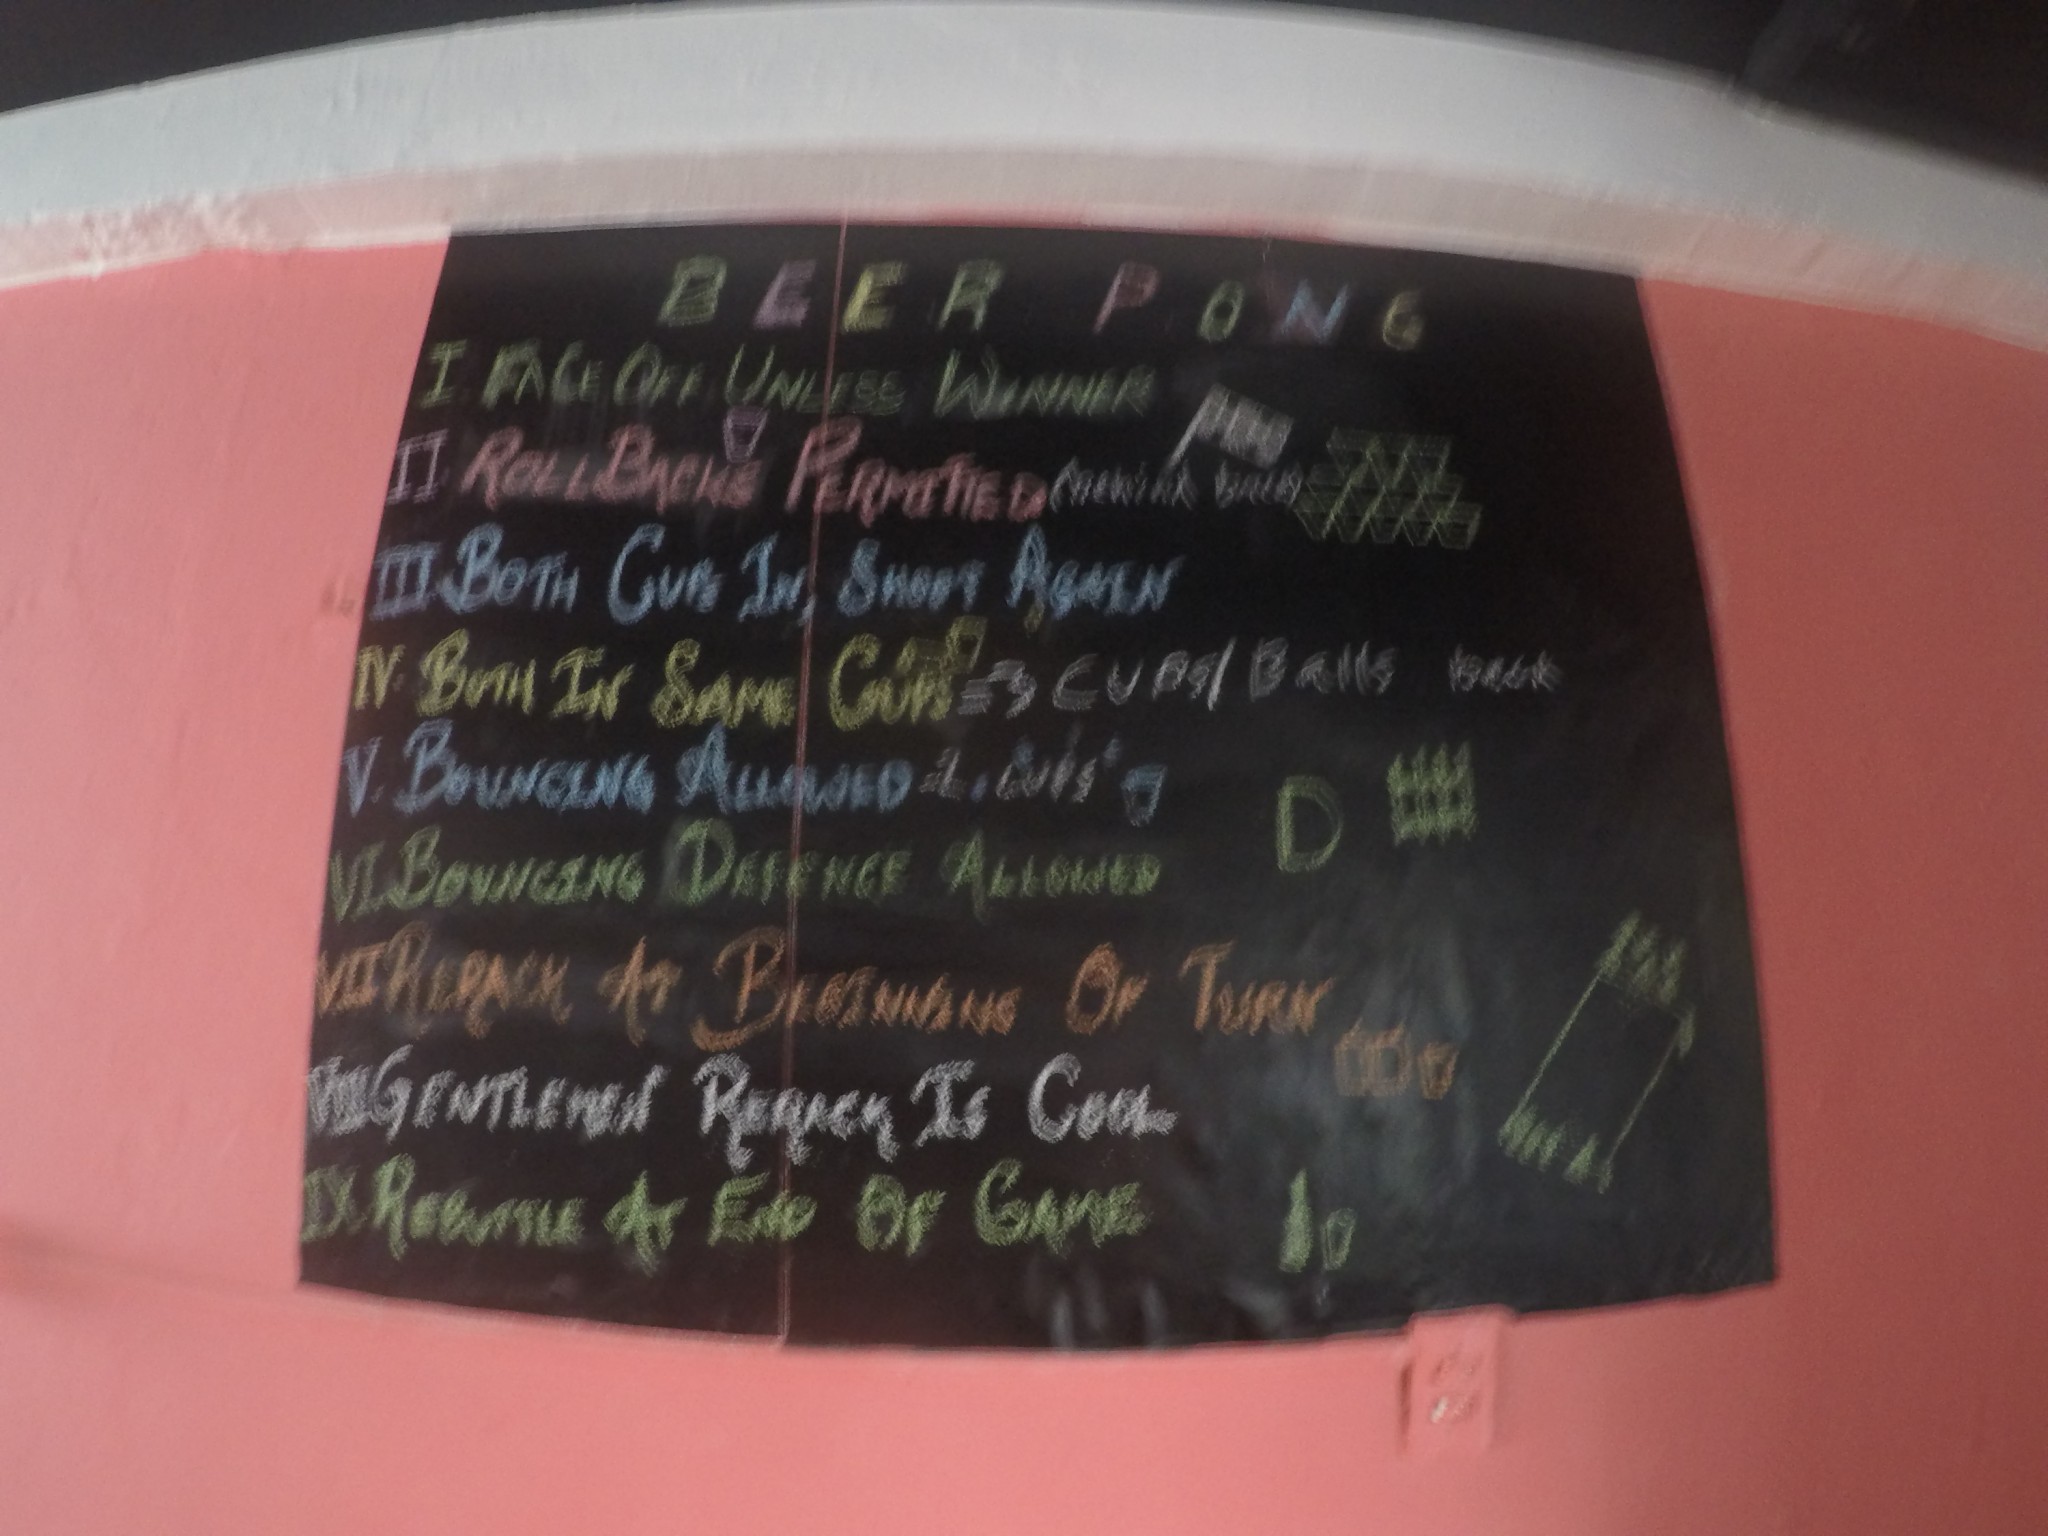 BEER PONG
I. FACE OFF UNLESS WINNER
II. ROLLBACKS PERMITTED
III. BOTH CUPS IN, SHOOT AGAIN
IV. BOTH IN SAME CUPS = 3 CUPS/ Balls back
V. BOUNCING ALLOWED 2. CUPS
VI. BOUNCING DEFENCE ALLOWED D
VII RERACK AT BEGINNING OF TURN
VIII GENTLEMEN RERACK IS COOL
IX. REBUTTLE AT END OF GAME